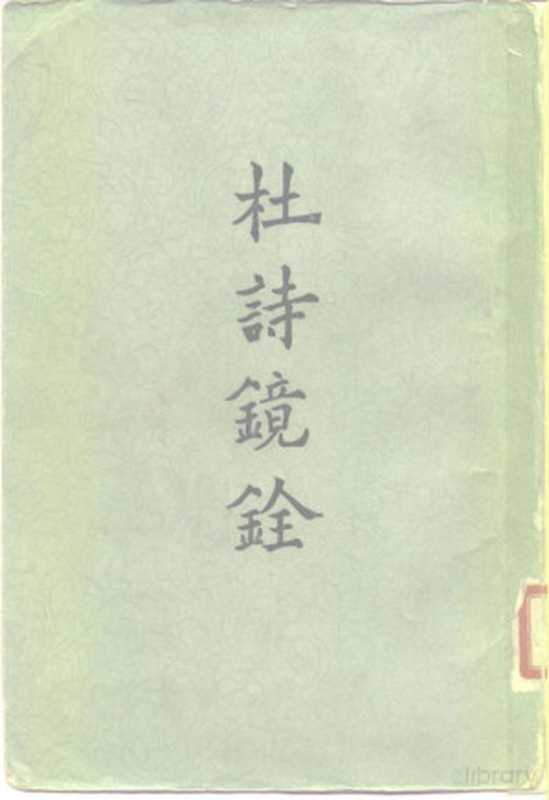 杜詩鏡銓
library